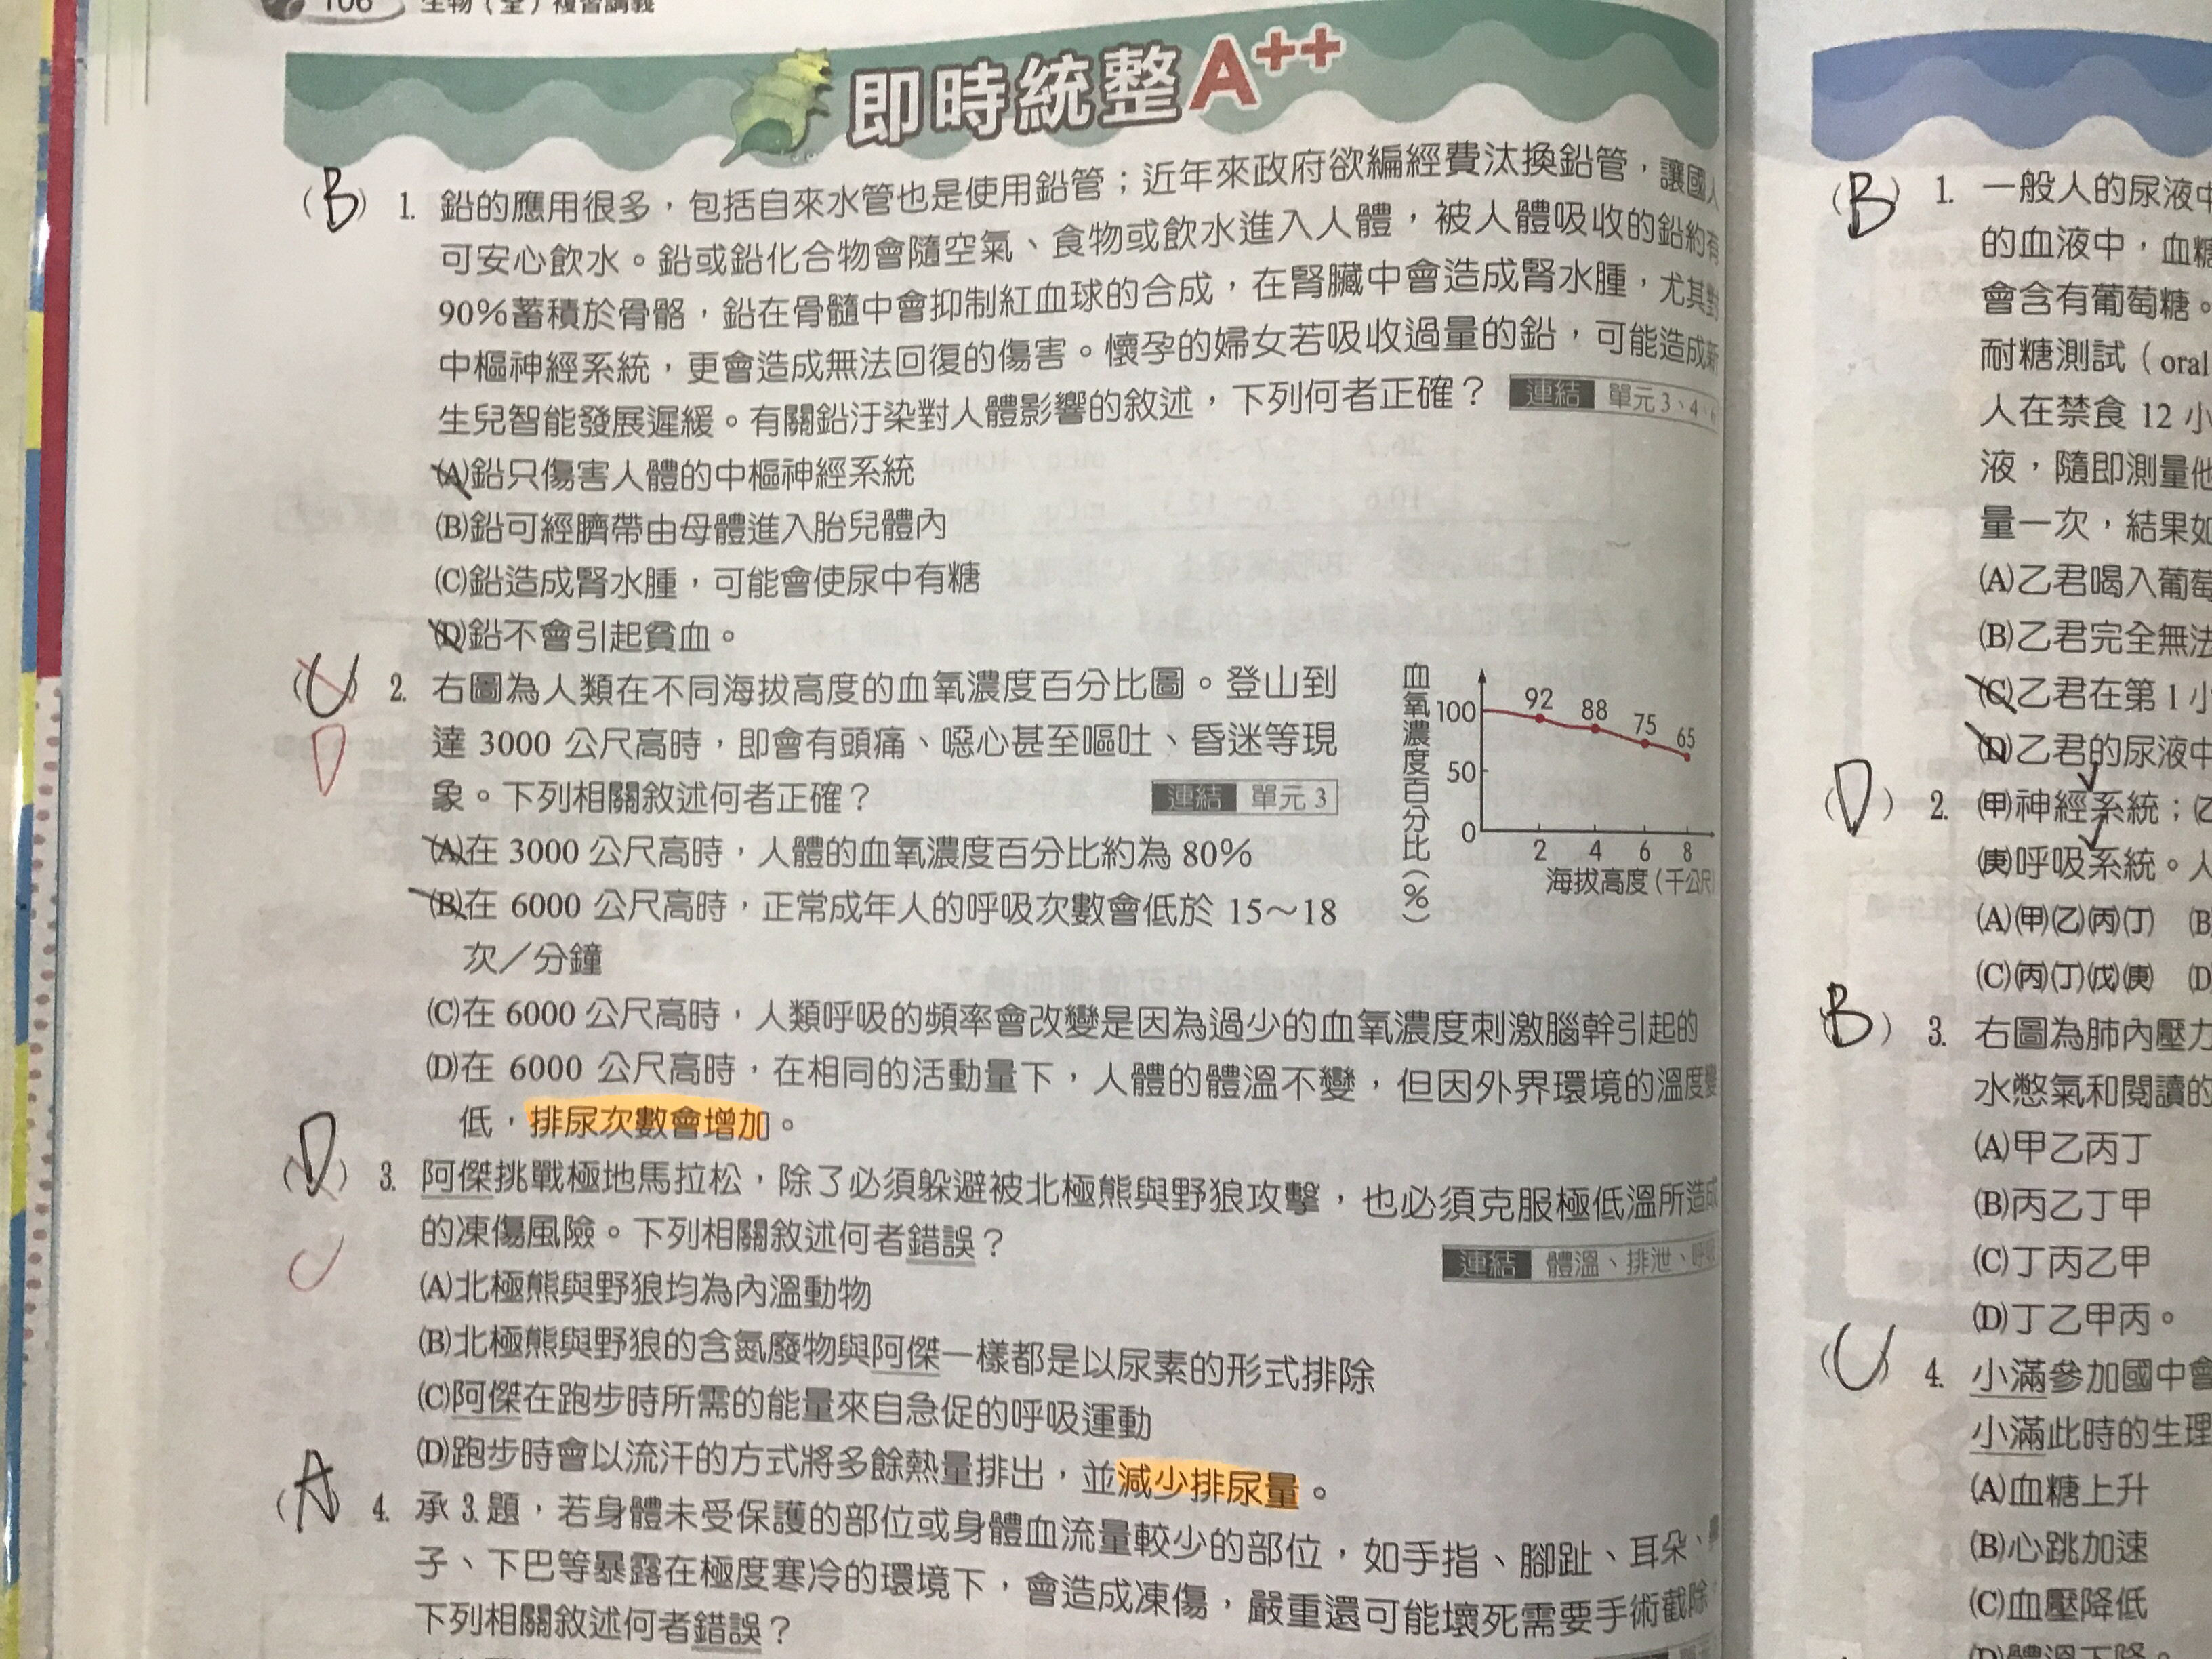 106 生物（全）複習講義
即時統整A++
(B) 1. 鉛的應用很多，包括自來水管也是使用鉛管；近年來政府欲編經費汰換鉛管，讓國人
可安心飲水。鉛或鉛化合物會隨空氣、食物或飲水進入人體，被人體吸收的鉛約有
90%蓄積於骨骼，鉛在骨髓中會抑制紅血球的合成，在腎臟中會造成腎水腫，尤其對
中樞神經系統，更會造成無法回復的傷害。懷孕的婦女若吸收過量的鉛，可能造成新
生兒智能發展遲緩。有關鉛汙染對人體影響的敘述，下列何者正確？ 連結 單元 3、4、
(A)鉛只傷害人體的中樞神經系統
(B)鉛可經臍帶由母體進入胎兒體內
(C)鉛造成腎水腫，可能會使尿中有糖
(D)鉛不會引起貧血。
(C) 2. 右圖為人類在不同海拔高度的血氧濃度百分比圖。登山到
D 達 3000 公尺高時，即會有頭痛、噁心甚至嘔吐、昏迷等現
象。下列相關敘述何者正確？ 連結 單元 3
(A)在 3000 公尺高時，人體的血氧濃度百分比約為 80%
(B)在 6000 公尺高時，正常成年人的呼吸次數會低於 15～18
次／分鐘
血氧濃度百分比（%）
100 50 0
92 88 75 65
2 4 6 8
海拔高度（千公尺
(C)在 6000 公尺高時，人類呼吸的頻率會改變是因為過少的血氧濃度刺激腦幹引起的
(D)在 6000 公尺高時，在相同的活動量下，人體的體溫不變，但因外界環境的溫度變
低，排尿次數會增加。
(D) 3. 阿傑挑戰極地馬拉松，除了必須躲避被北極熊與野狼攻擊，也必須克服極低溫所造成
C 的凍傷風險。下列相關敘述何者錯誤？ 連結 體溫、排泄、呼
(A)北極熊與野狼均為內溫動物
(B)北極熊與野狼的含氮廢物與阿傑一樣都是以尿素的形式排除
(C)阿傑在跑步時所需的能量來自急促的呼吸運動
(D)跑步時會以流汗的方式將多餘熱量排出，並減少排尿量。
(A) 4. 承 3.題，若身體未受保護的部位或身體血流量較少的部位，如手指、腳趾、耳朵、鼻
子、下巴等暴露在極度寒冷的環境下，會造成凍傷，嚴重還可能壞死需要手術截除
下列相關敘述何者錯誤？
(B) 1. 一般人的尿液中
的血液中，血糖
會含有葡萄糖。
耐糖測試（oral
人在禁食 12 小
液，隨即測量他
量一次，結果如
(A)乙君喝入葡萄
(B)乙君完全無法
(C)乙君在第 1 小
(D)乙君的尿液中
(D) 2. (甲)神經系統；(乙
(庚)呼吸系統。人
(A)(甲)(乙)(丙)(丁) (B
(C)(丙)(丁)(戊)(庚) (D
(B) 3. 右圖為肺內壓力
水憋氣和閱讀的
(A)甲乙丙丁
(B)丙乙丁甲
(C)丁丙乙甲
(D)丁乙甲丙。
(C) 4. 小滿參加國中會
小滿此時的生理
(A)血糖上升
(B)心跳加速
(C)血壓降低
(D)體溫下降。